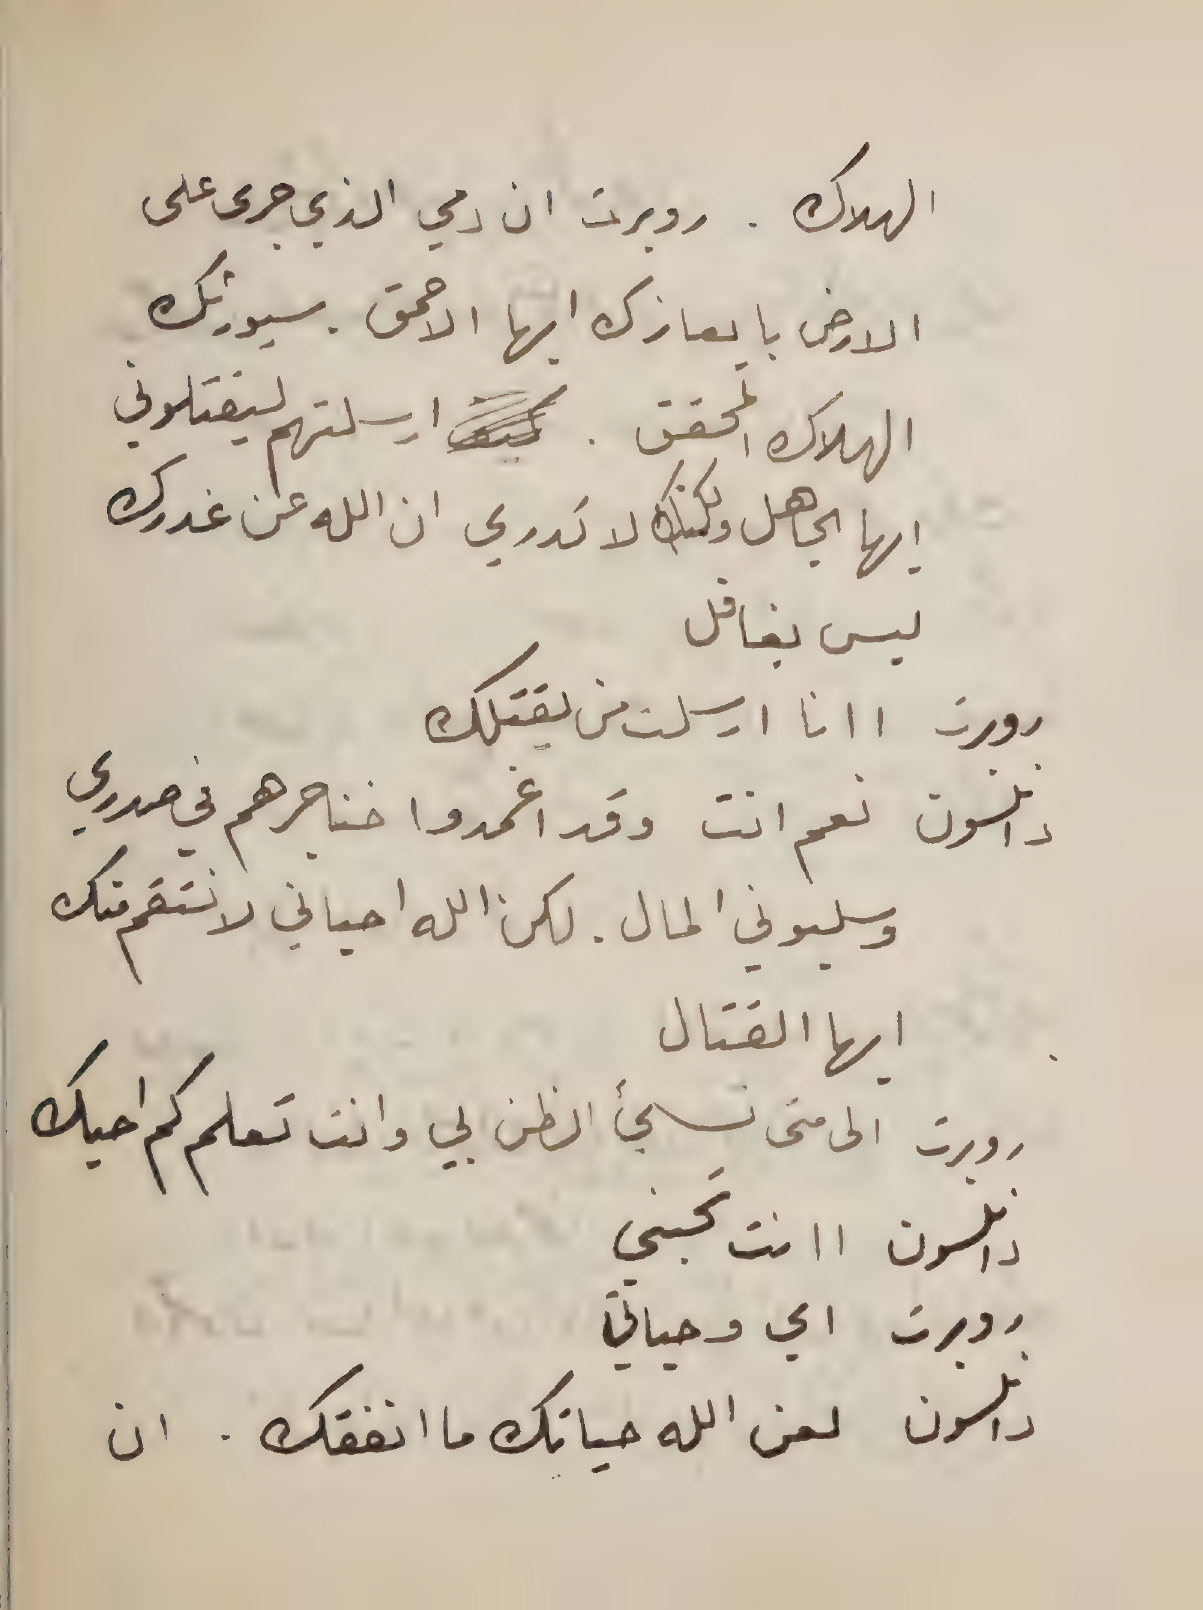 الهلاك . روبرت ان دمي الذي جرى على
الارض بايعازك ايها الاحمق . سيورثك
الهلاك المحقق . ارسلتهم ليقتلوني
ايها الجاهل ولكنك لا تدري ان الله عن غدرك
ليس بغافل
روبرت اانا ارسلت من يقتلك
دانلسون نعم انت وقد اغمدوا خناجرهم في صدري
وسلبوني المال . لكن الله احياني لانتقم منك
ايها القتال
روبرت الى متى تسيئ الظن بي وانت تعلم كم احبك
دانلسون اانت تحبني
روبرت اي وحياتي
دانلسون لعن الله حياتك ما انفقك . ان